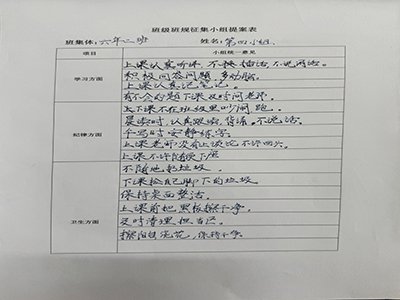 班级班规征集小组提案表
班集体：六年二班 姓名：第四小组
项目 小组统一意见
学习方面
上课认真听讲，不接话语，不说闲话。
积极回答问题，多动脑。
上课认真记笔记。
有不会的题下课及时问老师。
纪律方面
上下课不在班级里吵闹跑。
晨读时，认真跟读，背诵，不说话。
午写时安静练字。
上课老师没有上谈论不许回头
上课不许随便下位
卫生方面
不随地扔垃圾。
下课捡自己脚下的垃圾
保持桌面整洁。
上课前把黑板擦干净。
定时清理担当区。
擦阳台瓷花，保持干净。